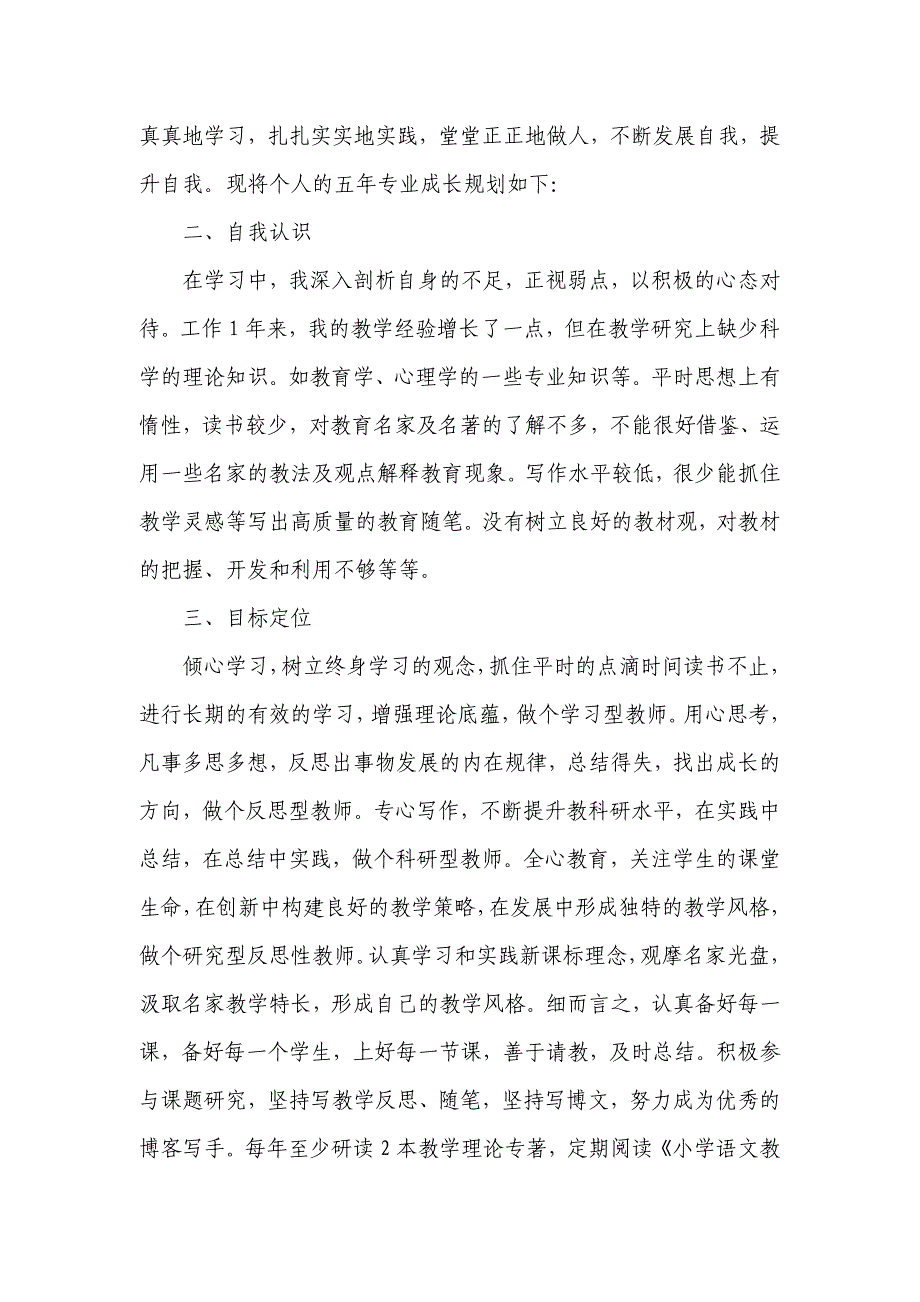 真真地学习，扎扎实实地实践，堂堂正正地做人，不断发展自我，提
升自我。现将个人的五年专业成长规划如下：
二、自我认识
在学习中，我深入剖析自身的不足，正视弱点，以积极的心态对
待。工作 1 年来，我的教学经验增长了一点，但在教学研究上缺少科
学的理论知识。如教育学、心理学的一些专业知识等。平时思想上有
惰性，读书较少，对教育名家及名著的了解不多，不能很好借鉴、运
用一些名家的教法及观点解释教育现象。写作水平较低，很少能抓住
教学灵感等写出高质量的教育随笔。没有树立良好的教材观，对教材
的把握、开发和利用不够等等。
三、目标定位
倾心学习，树立终身学习的观念，抓住平时的点滴时间读书不止，
进行长期的有效的学习，增强理论底蕴，做个学习型教师。用心思考，
凡事多思多想，反思出事物发展的内在规律，总结得失，找出成长的
方向，做个反思型教师。专心写作，不断提升教科研水平，在实践中
总结，在总结中实践，做个科研型教师。全心教育，关注学生的课堂
生命，在创新中构建良好的教学策略，在发展中形成独特的教学风格，
做个研究型反思性教师。认真学习和实践新课标理念，观摩名家光盘，
汲取名家教学特长，形成自己的教学风格。细而言之，认真备好每一
课，备好每一个学生，上好每一节课，善于请教，及时总结。积极参
与课题研究，坚持写教学反思、随笔，坚持写博文，努力成为优秀的
博客写手。每年至少研读 2 本教学理论专著，定期阅读《小学语文教